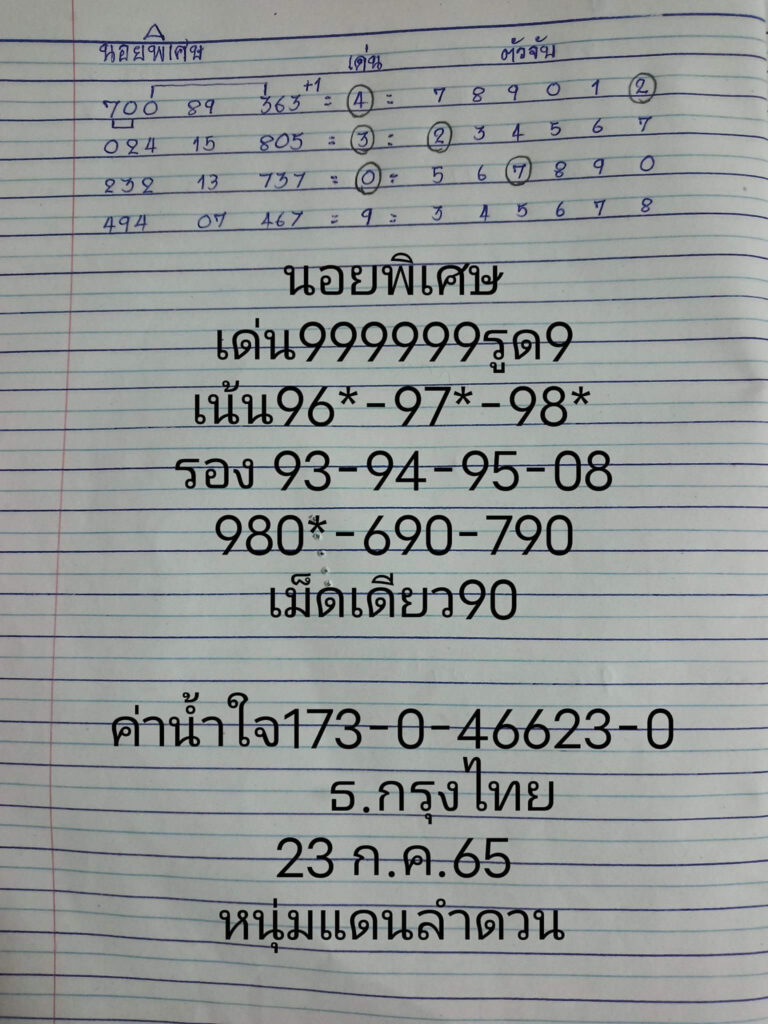 นอยพิเศษ
เด่น ตัวจับ
700 89 363 +1 = 4 = 7 8 9 0 1 2
024 15 805 = 3 = 2 3 4 5 6 7
232 13 737 = 0 = 5 6 7 8 9 0
494 07 467 = 9 = 3 4 5 6 7 8
นอยพิเศษ
เด่น999999รูด9
เน้น96*-97*-98*
รอง 93-94-95-08
980*-690-790
เม็ดเดียว90
ค่าน้ำใจ173-0-46623-0
ธ.กรุงไทย
23 ก.ค.65
หนุ่มแดนลำดวน